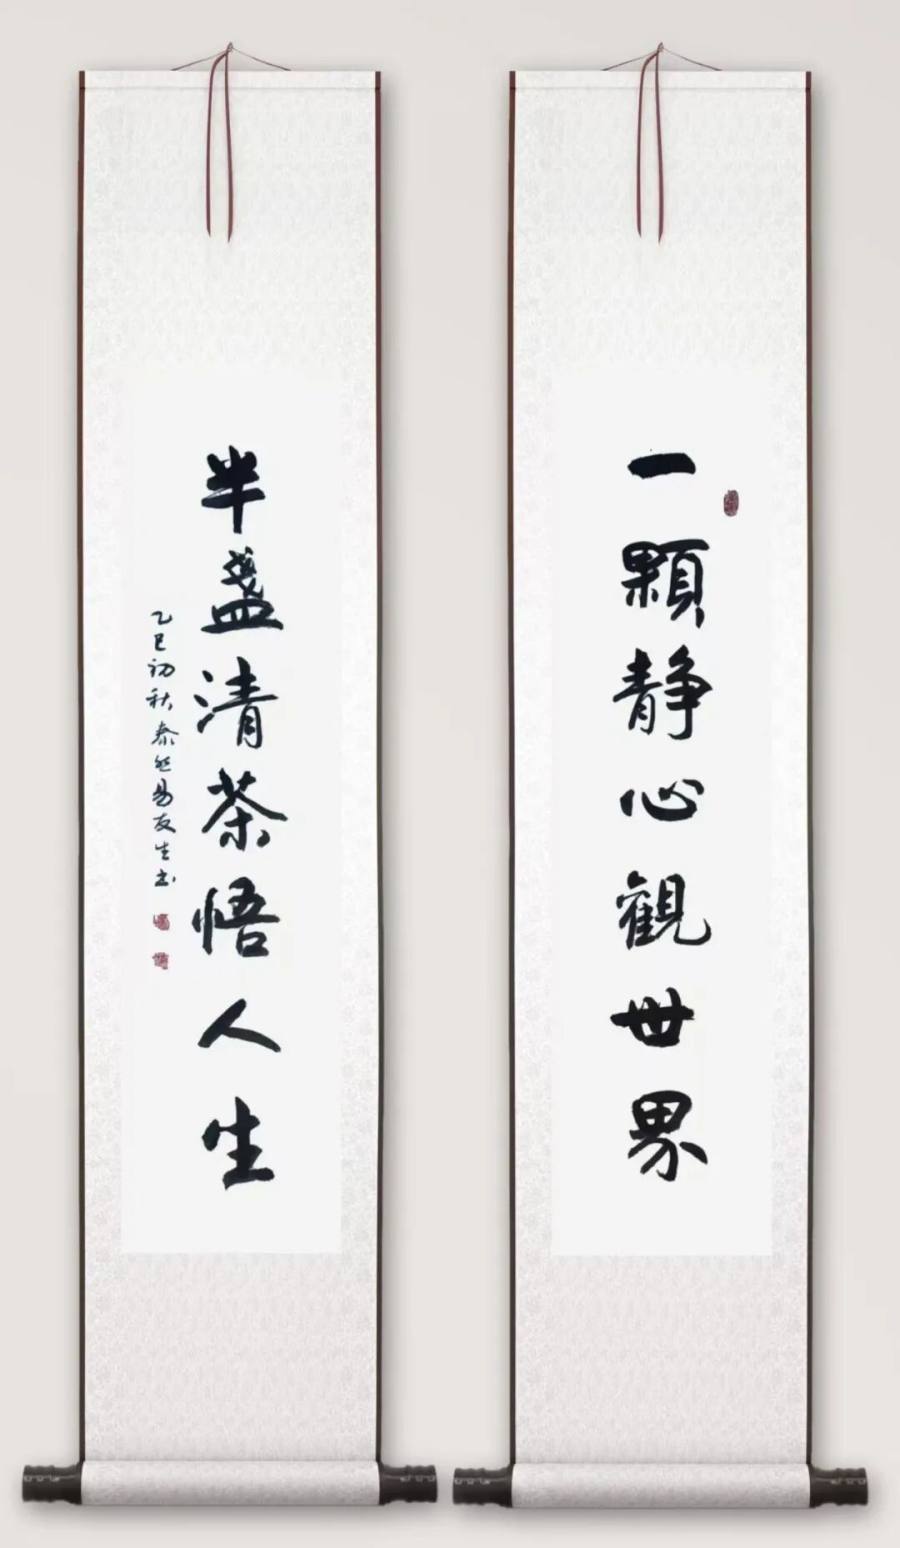 一顆静心觀世界
半盞清茶悟人生
乙巳初秋泰然易友生书